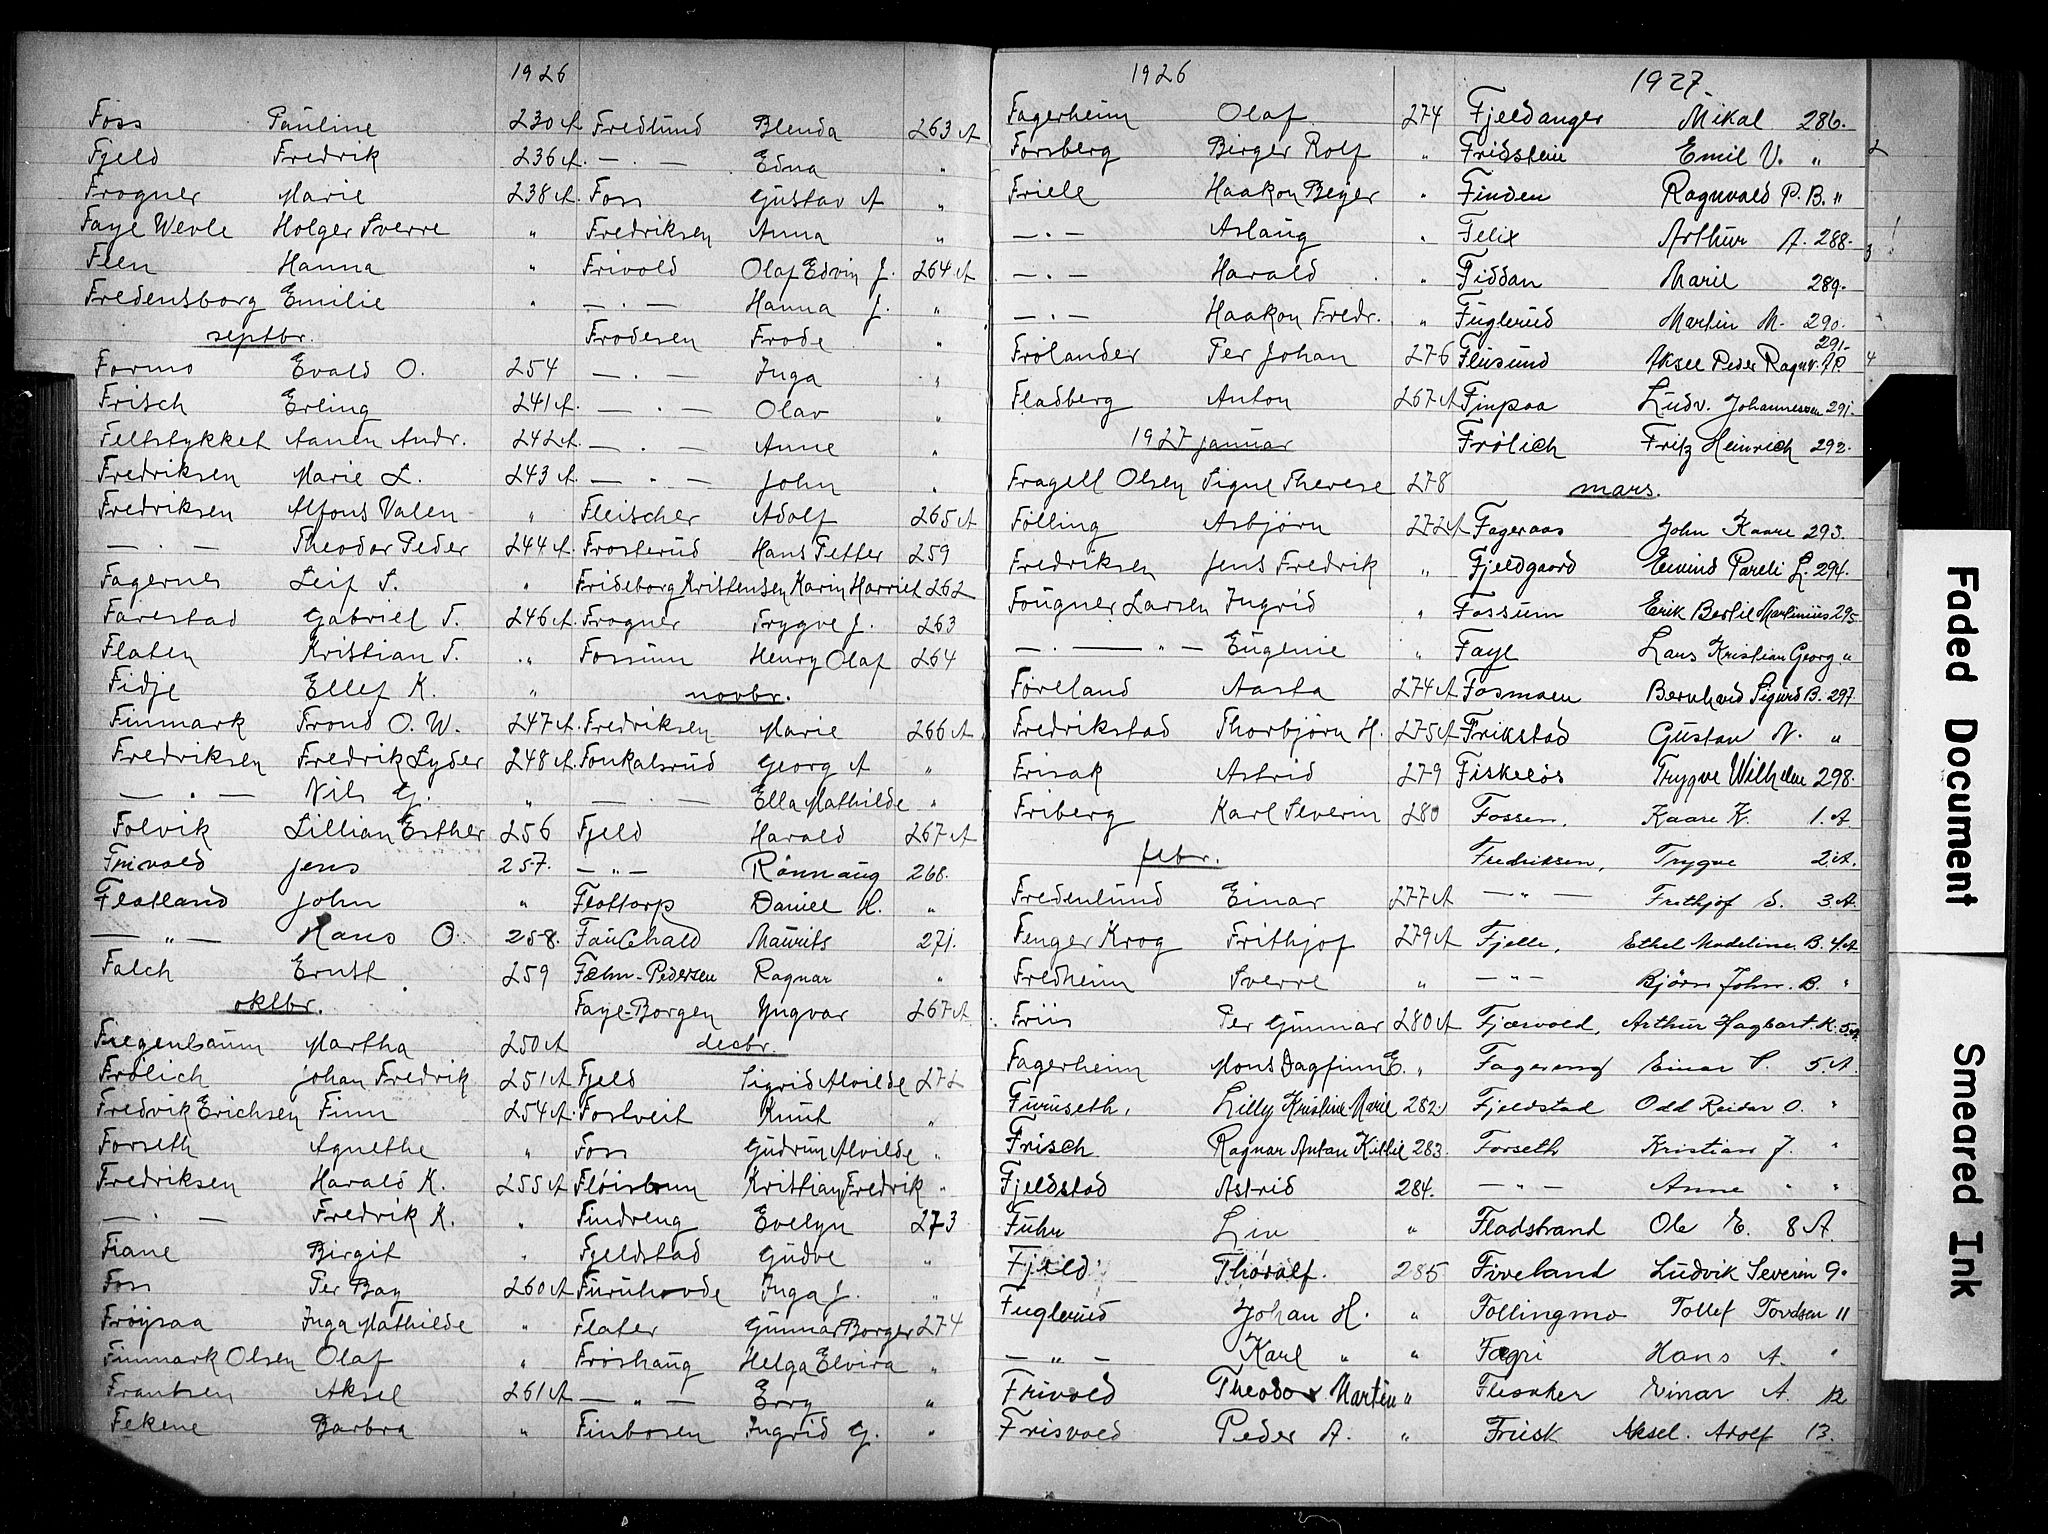 1926
Foss Pauline 230 A
Fjeld Fredrik 236 A.
Frogner Marie 238 A.
Faye Wevle Holger Sverre "
Feen Hanna "
Fredensborg Emilie "
septbr.
Formo Evald O. 254
Frisch Erling 241 A.
Feltstykket Aanen Andr. 242 A.
Fredriksen Marie L. 243 A.
Fredriksen Alfons Valen "
— . — Theodor Peder 244 A.
Fagernes Leif S. "
Farestad Gabriel T. 246 A.
Flaten Kristian T. "
Fidje Ellef K. "
Finmark Trond O. W. 247 A
Fredriksen Fredrik Lyder 248 A.
— " — Nils G. "
Folvik Lillian Esther 256
Frivold Jens 257.
Flatland John "
— " — Hans O. 258.
Falch Ernst 259
oktbr.
Fregenbaum Martha 250 A
Frølich Johan Fredrik 251 A
Fredvik Erichsen Finn 254 A.
Forseth Agnethe "
Fredriksen Harald K. 255 A
— . — Fredrik K. "
Fiane Birgit "
Foss Per Bay 260 A
Frøysaa Inga Mathilde "
Finmark Olsen Olaf "
Frantsen Aksel 261 A
Fekene Barbra "
Fredlund Blenda 263 A
— . — Edna "
Foss Gustav A "
Fredriksen Anna "
Frivold Olaf Edvin J. 264 A
— . — Hanna J. "
Frodesen Frode "
— . — Inga "
— . — Olav "
— . — Anne "
— . — John "
Fleischer Adolf 265 A
Frosterud Hans Petter 259
Frideborg Kristensen Karin Harriet 262
Frogner Trygve J. 263
Fossum Henry Olaf 264
novbr.
Fredriksen Marie 266 A
Fonkalsrud Georg A "
— . — Ella Mathilde "
Fjeld Harald 267 A
— " — Rønnaug 268.
Flottorp Daniel H. "
Fauchald Mauritz 271.
Fæhn-Pedersen Ragnar "
Faye-Borgen Yngvar 267 A
decbr.
Fjeld Sigrid Alvilde 272
Fostveit Knut "
Foss Gudrun Alvilde "
Fløistrun Kristian Fredrik "
Findreng Evelyn 273
Fjeldstad Gudve "
Furuhovde Inga J. "
Flater Gunnar Borger 274
Frøshaug Helga Elvira "
— " — Erry "
Finbosen Ingrid G. "
1926
Fagerheim Olaf 274
Forsberg Birger Rolf "
Friele Haakon Beyer "
— . — Aslaug "
— . — Harald "
— . — Haakon Fredr. "
Frølander Per Johan 276
Fladberg Anton 267 A
1927 januar
Fragell Olsen Signe Therese 278
Følling Asbjørn 272 A
Fredriksen Jens Fredrik "
Fougner Larsen Ingrid "
— . — " — Eugenie "
Føreland Aasta 274 A
Fredrikstad Thorbjørn H. 275 A
Frisak Astrid 279
Friberg Karl Severin 280
febr.
Fredenlund Einar 277 A
Fenger Krog Frithjof 279 A
Fredheim Sverre "
Friis Per Gunnar 280 A
Fagerheim Mons Dagfinn E. "
Furuseth, Lilly Kristine Marie 282
Frisch Ragnar Anton Kittil 283.
Fjeldstad Astrid 284.
Fuhr Liv "
Fjeld Thoralf. 285
Fuglerud Johan H. "
— " — Karl " "
Frivold Theodor Martin "
Frisvold Peder A. "
1927.
Fjeldanger Mikal 286.
Fridstein Emil V. "
Finden Ragnvald P. B. "
Felix Arthur A. 288.
Fiddan Marie 289.
Fuglerud Martin M. 290.
291.
Flusund Aksel Peder Ragnv. A P.
Finpaa Ludv. Johannessen 291.
Frølich Fritz Heinrich 292.
mars.
Fageraas John Kaare 293.
Fjeldgaard Eivind Pareli L. 294.
Fossum Erik Bertil Martinius 295
Faye Lars Kristian Georg "
Fosmoen Bernhard Sigurd B. 297
Frikstad Gustav N. "
Fiskeløs Trygve Wilhelm 298.
Fossen, Kaare K. 1. A.
Fredriksen, Trygve 2. A.
— " — Frithjof S. 3. A.
Fjelle, Ethel Madeline B. 4. A
— " — Bjørn John B. "
Fjærvold, Arthur Hagbart K. 5. A.
Fagereng Einar P. 5. A.
Fjeldstad Odd Reidar O. "
Forseth Kristian J. "
— " — Anne " "
Fladstrand Ole E. 8 A.
Føreland Ludvik Severin 9.
Follingmo Tollef Tovdsen 11
Fagri Hans A. "
Flesaker Einar A. 12
Frisk Aksel. Adolf 13.
2
3
4
Faded Document
Smeared Ink